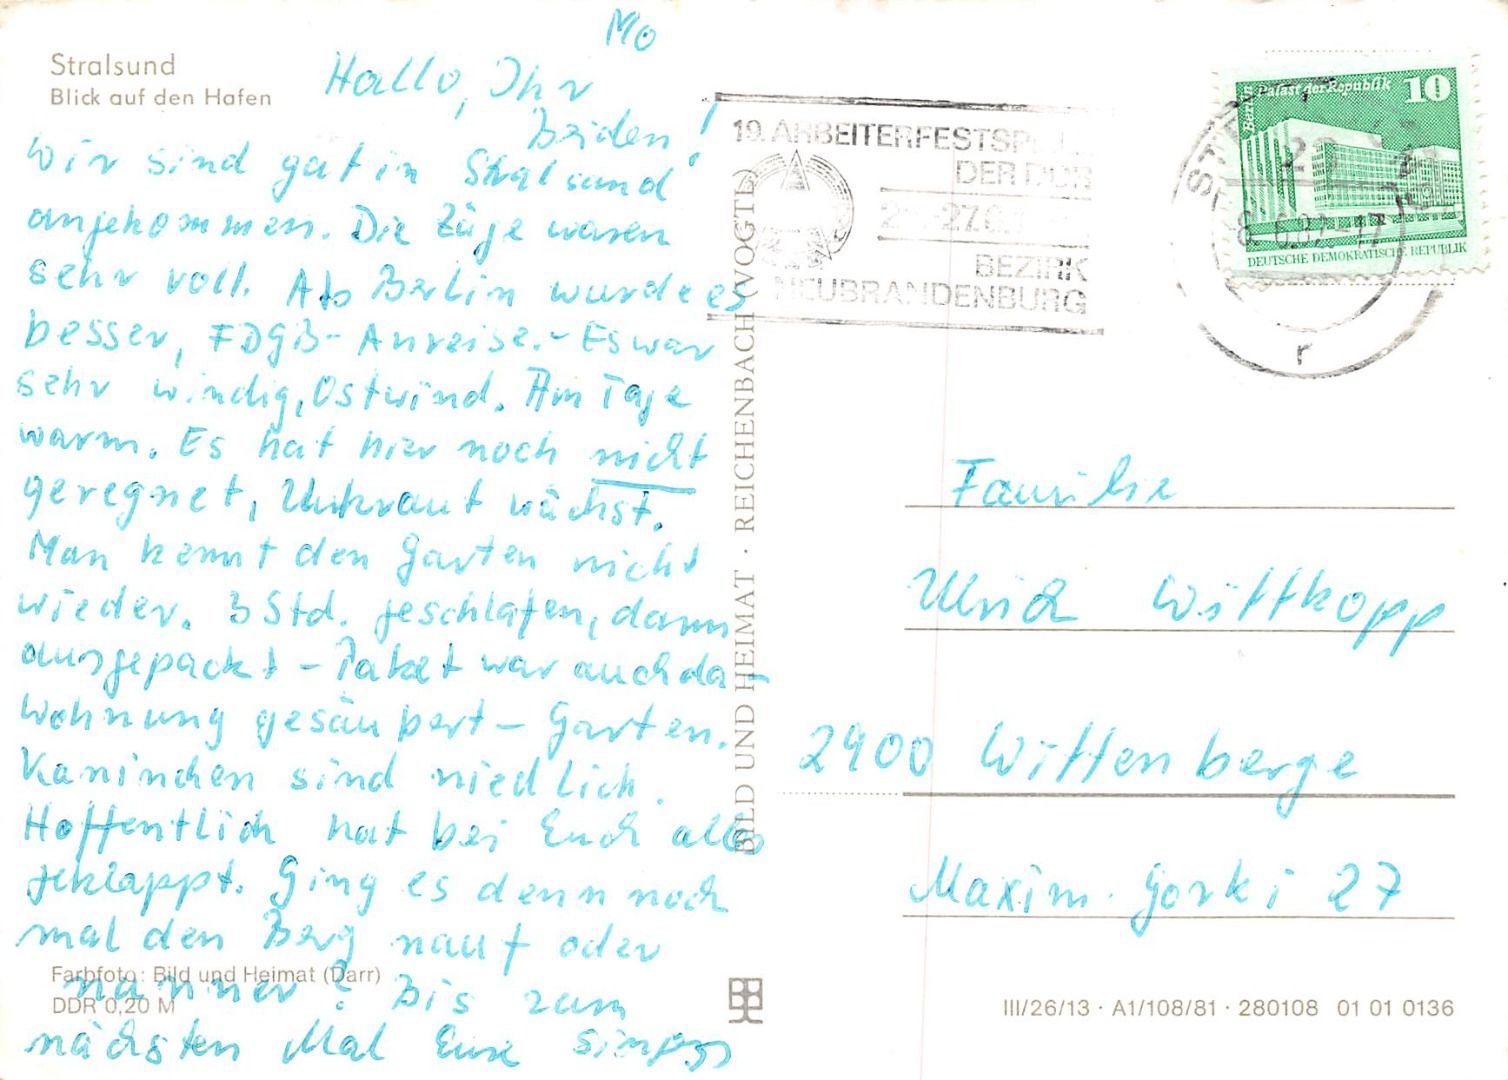 Stralsund
Blick auf den Hafen
Mo
Hallo, Ihr
Beiden!
Wir sind gut in Stralsund
angekommen. Die Züge waren
sehr voll. Ab Berlin wurde es
besser, FDGB-Anreise.- Es war
sehr windig, Ostwind. Am Tage
warm. Es hat hier noch nicht
geregnet, Unkraut wächst.
Man kennt den Garten nicht
wieder. 3 Std. geschlafen, dann
ausgepackt - Paket war auch da -
Wohnung gesäubert - Garten.
Kaninchen sind niedlich.
Hoffentlich hat bei Euch alles
geklappt. Ging es denn noch
mal den Berg nauf oder
nanner? Bis zum
nächsten Mal Eure
Farbfoto: Bild und Heimat (Darr)
DDR 0,20 M
BILD UND HEIMAT · REICHENBACH (VOGTL)
19. ARBEITERFESTSP
DER DDR
27.6.
BEZIRK
NEUBRANDENBURG
Berlin Palast der Republik 10
DEUTSCHE DEMOKRATISCHE REPUBLIK
8.6.82-17
r
Familie
Ulrich Wittkopp
2900 Wittenberge
Maxim-Gorki 27
III/26/13 · A1/108/81 · 280108 01 01 0136